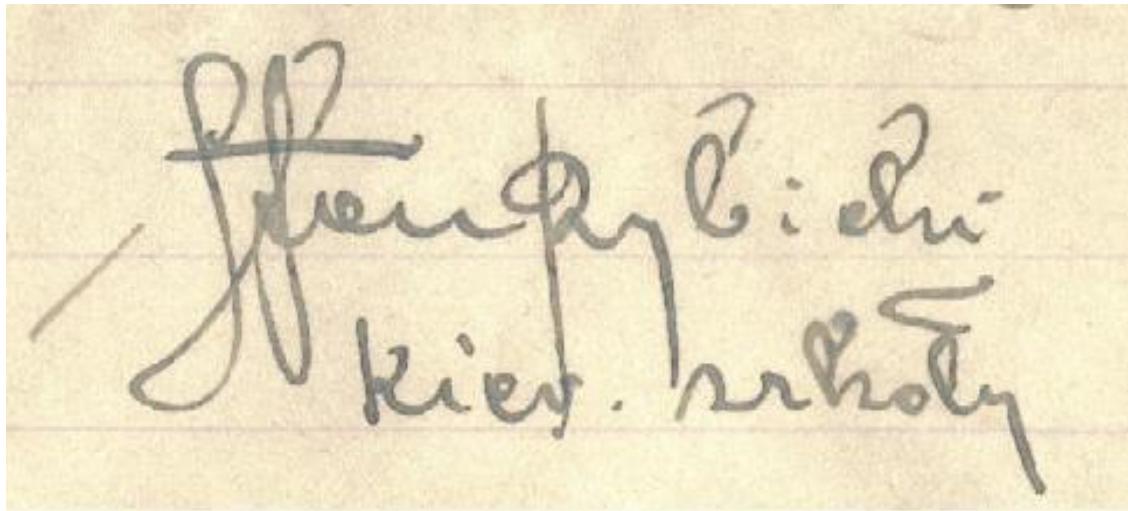 Stan Rybicki
kier. szkoły